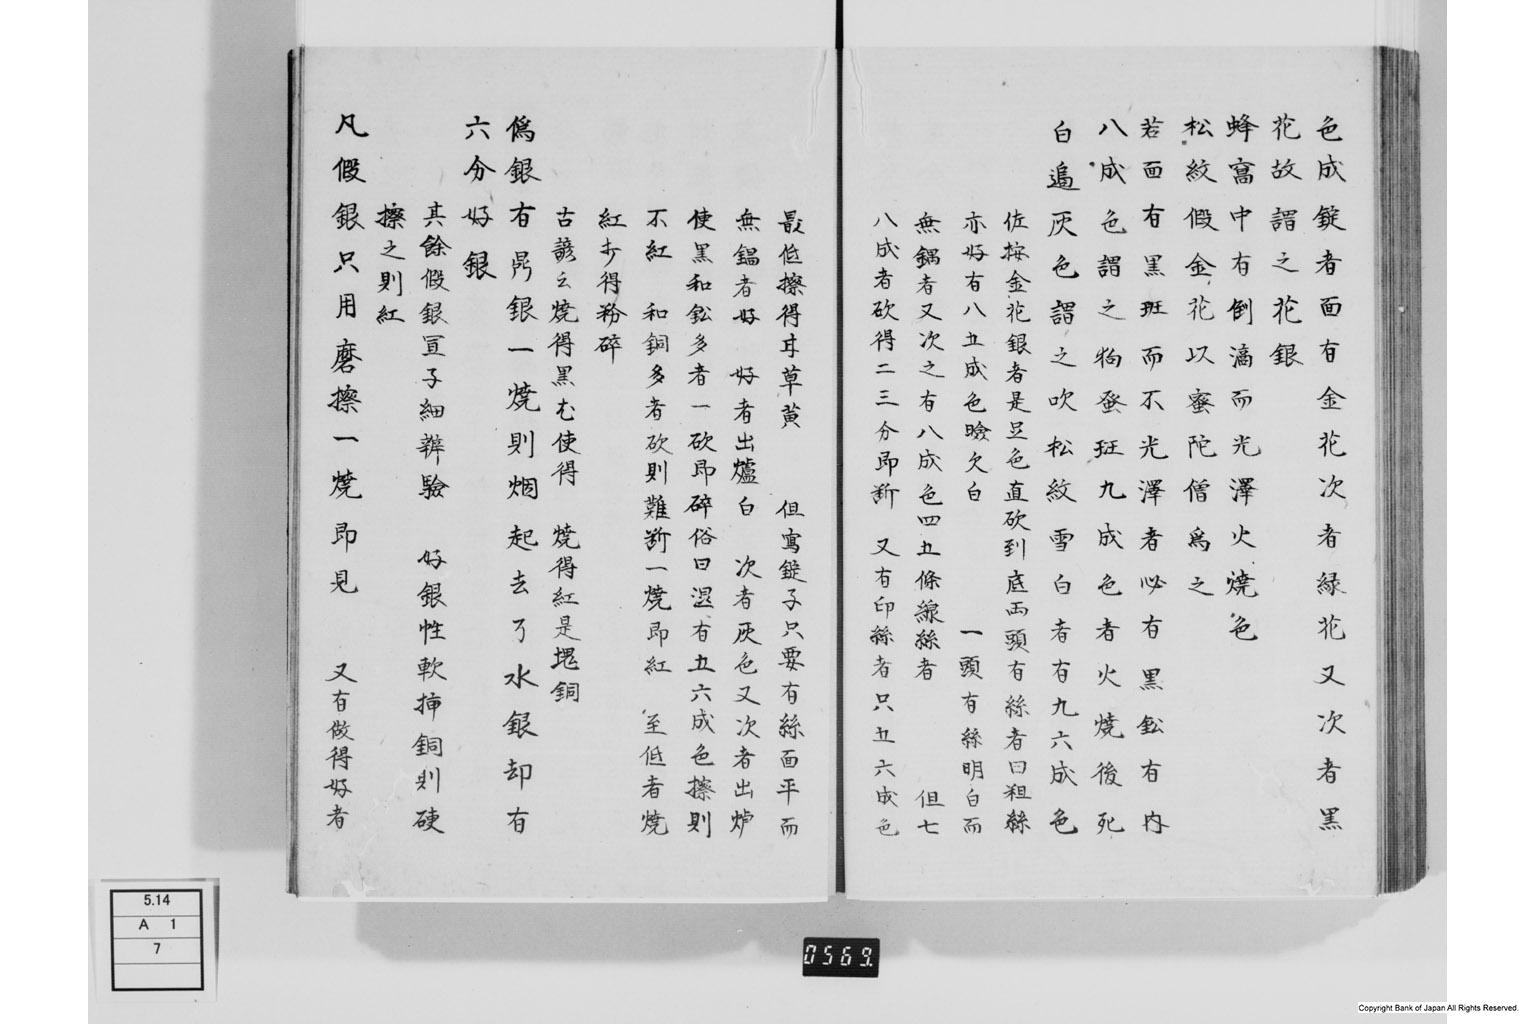 色成錠者面有金花次者緑花又次者黒
花故謂之花銀
蜂窩中有倒滴而光澤火燒色
松紋假金花以蜜陀僧爲之
若面有黒斑而不光澤者必有黒鈆有内
八成色謂之狗蚤斑九成色者火燒後死
白邉灰色謂之吹松紋雪白者有九六成色
佐按金花銀者是足色直砍到底两頭有絲者曰粗絲
亦好有八五成色瞼欠白 一頭有絲明白而
無鍋者又次之有八成色四五條線絲者 但七
八成者砍得二三分即断 又有印絲者只五六成色
最低擦得甘草黄 但寫錠子只要有絲面平而
無鍋者好 好者出爐白 次者灰色又次者出炉
使黒和鈆多者一砍即碎俗曰混有五六成色擦則
不紅 和銅多者砍則難断一燒即紅 至低者燒
紅才得務碎
古諺云燒得黒也使得 燒得紅是塊銅
僞銀有鼎銀一燒則烟起去了水銀却有
六分好銀
其餘假銀宜子細辨驗 好銀性軟揷銅則硬
擦之則紅
凡假銀只用磨擦一燒即見 又有做得好者
5.14
A 1
7
0569.
Copyright Bank of Japan All Rights Reserved.